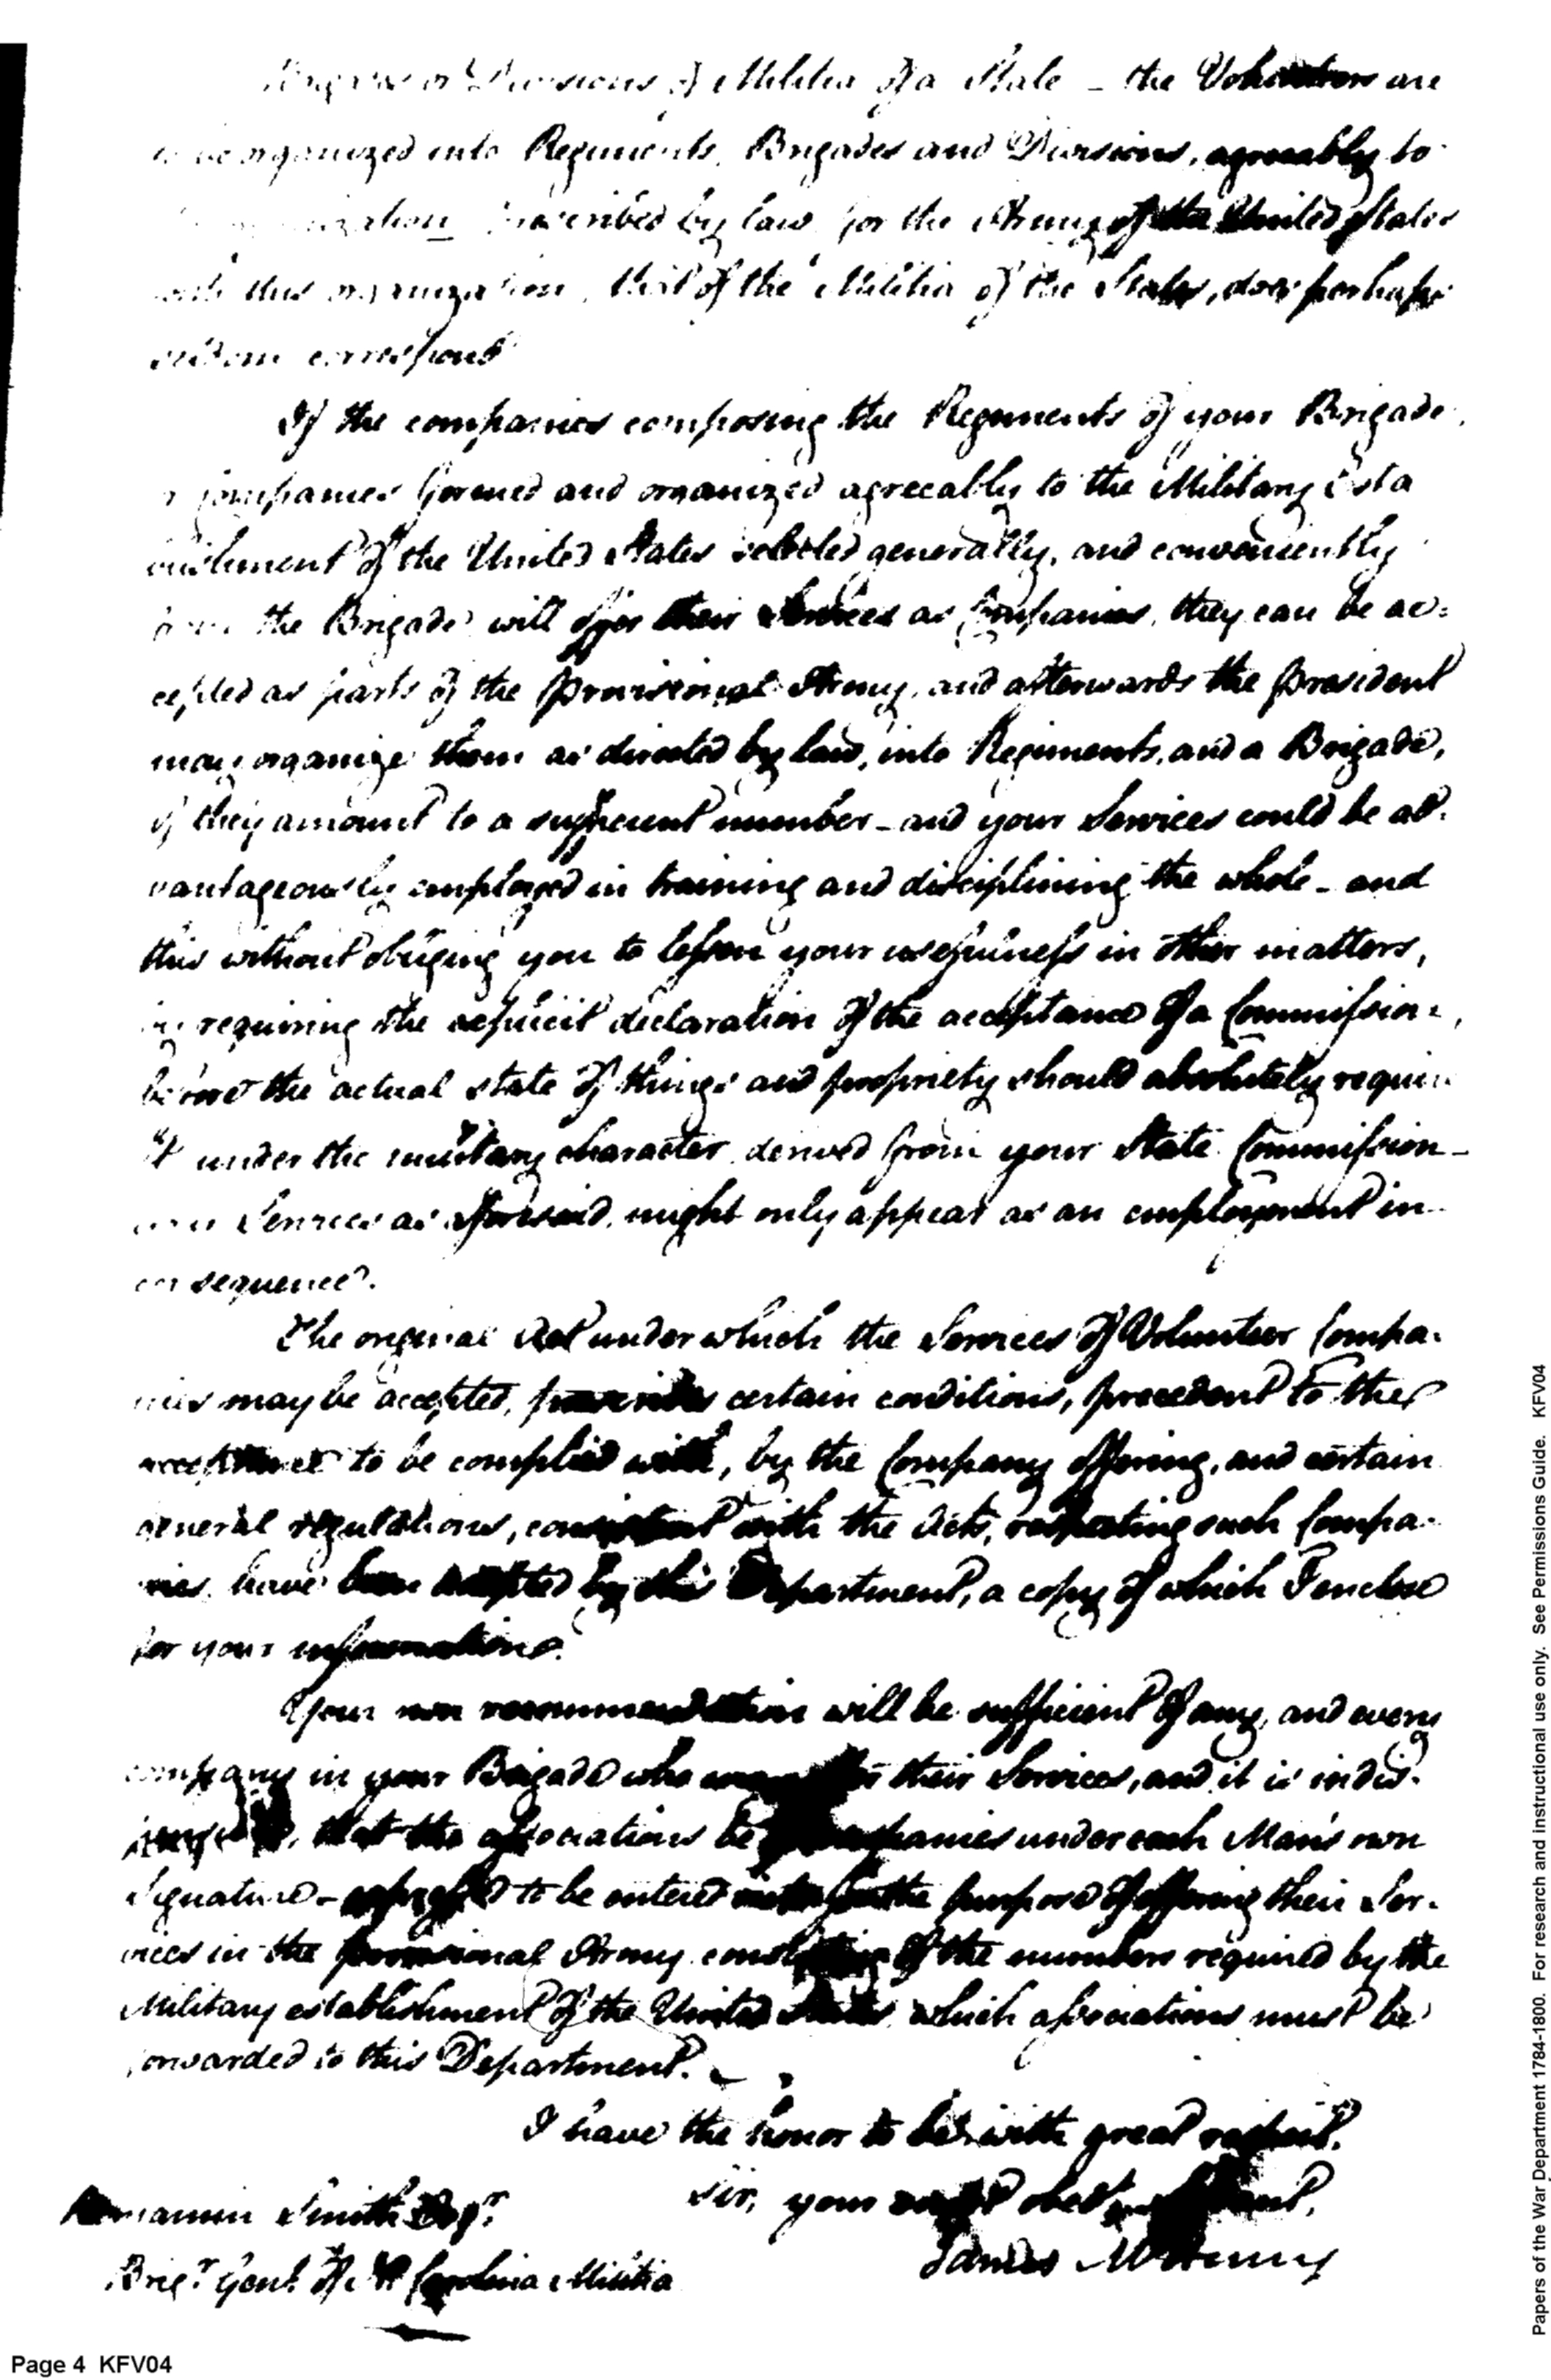 Brigades or Divisions of Militia of a State – the Volunteers are
to be organized into Regiments, Brigades and Divisions, agreeably to
prescribed by law for the Army of the United States
with this organization, that of the Militia of the States, does perhaps
seldom correspond
If the companies composing the Regiments of your Brigade,
or companies formed and organized agreeably to the Military Esta
blishment of the United States selected generally, and conveniently
from the Brigade will offer their Services as Companies, they can be ac=
cepted as parts of the provisional Army, and afterwards the President
may organize them as directed by law, into Regiments, and a Brigade,
if they amount to a sufficient number – and your Services could be ad.
vantageously employed in training and disciplining the whole – and
this without obliging you to lessen your usefulness in other matters,
by requiring the explicit declaration of the acceptance of a Commission,
before the actual state of things and propriety should absolutely require
it under the military character derived from your State Commission –
Services as aforesaid, might only appear as an employment in
consequence.
The original Act under which the Services of Volunteer Compa-
nies may be accepted, provides certain conditions, precedent to the
acceptance to be complied with, by the Company offering, and certain
general regulations, consistent with the Acts, respecting such Compa-
nies have been adopted by this Department, a copy of which I enclose
for your information.
Your own recommendation will be sufficient of any, and every
company in your Brigade who their Services, and it is indis-
that the associations be companies under each Man's own
Signature – to be entered into for the purpose of offering their Ser-
vices in the provisional Army of the numbers required by the
Military establishment of the United States which associations must be
forwarded to this Department.
I have the honor to be, with great respect,
Sir, your most obed.t servant,
James McHenry
Benjamin Smith Esq.r
Brig.r Genl. of N Carolina Militia
Page 4 KFV04
Papers of the War Department 1784-1800. For research and instructional use only. See Permissions Guide. KFV04